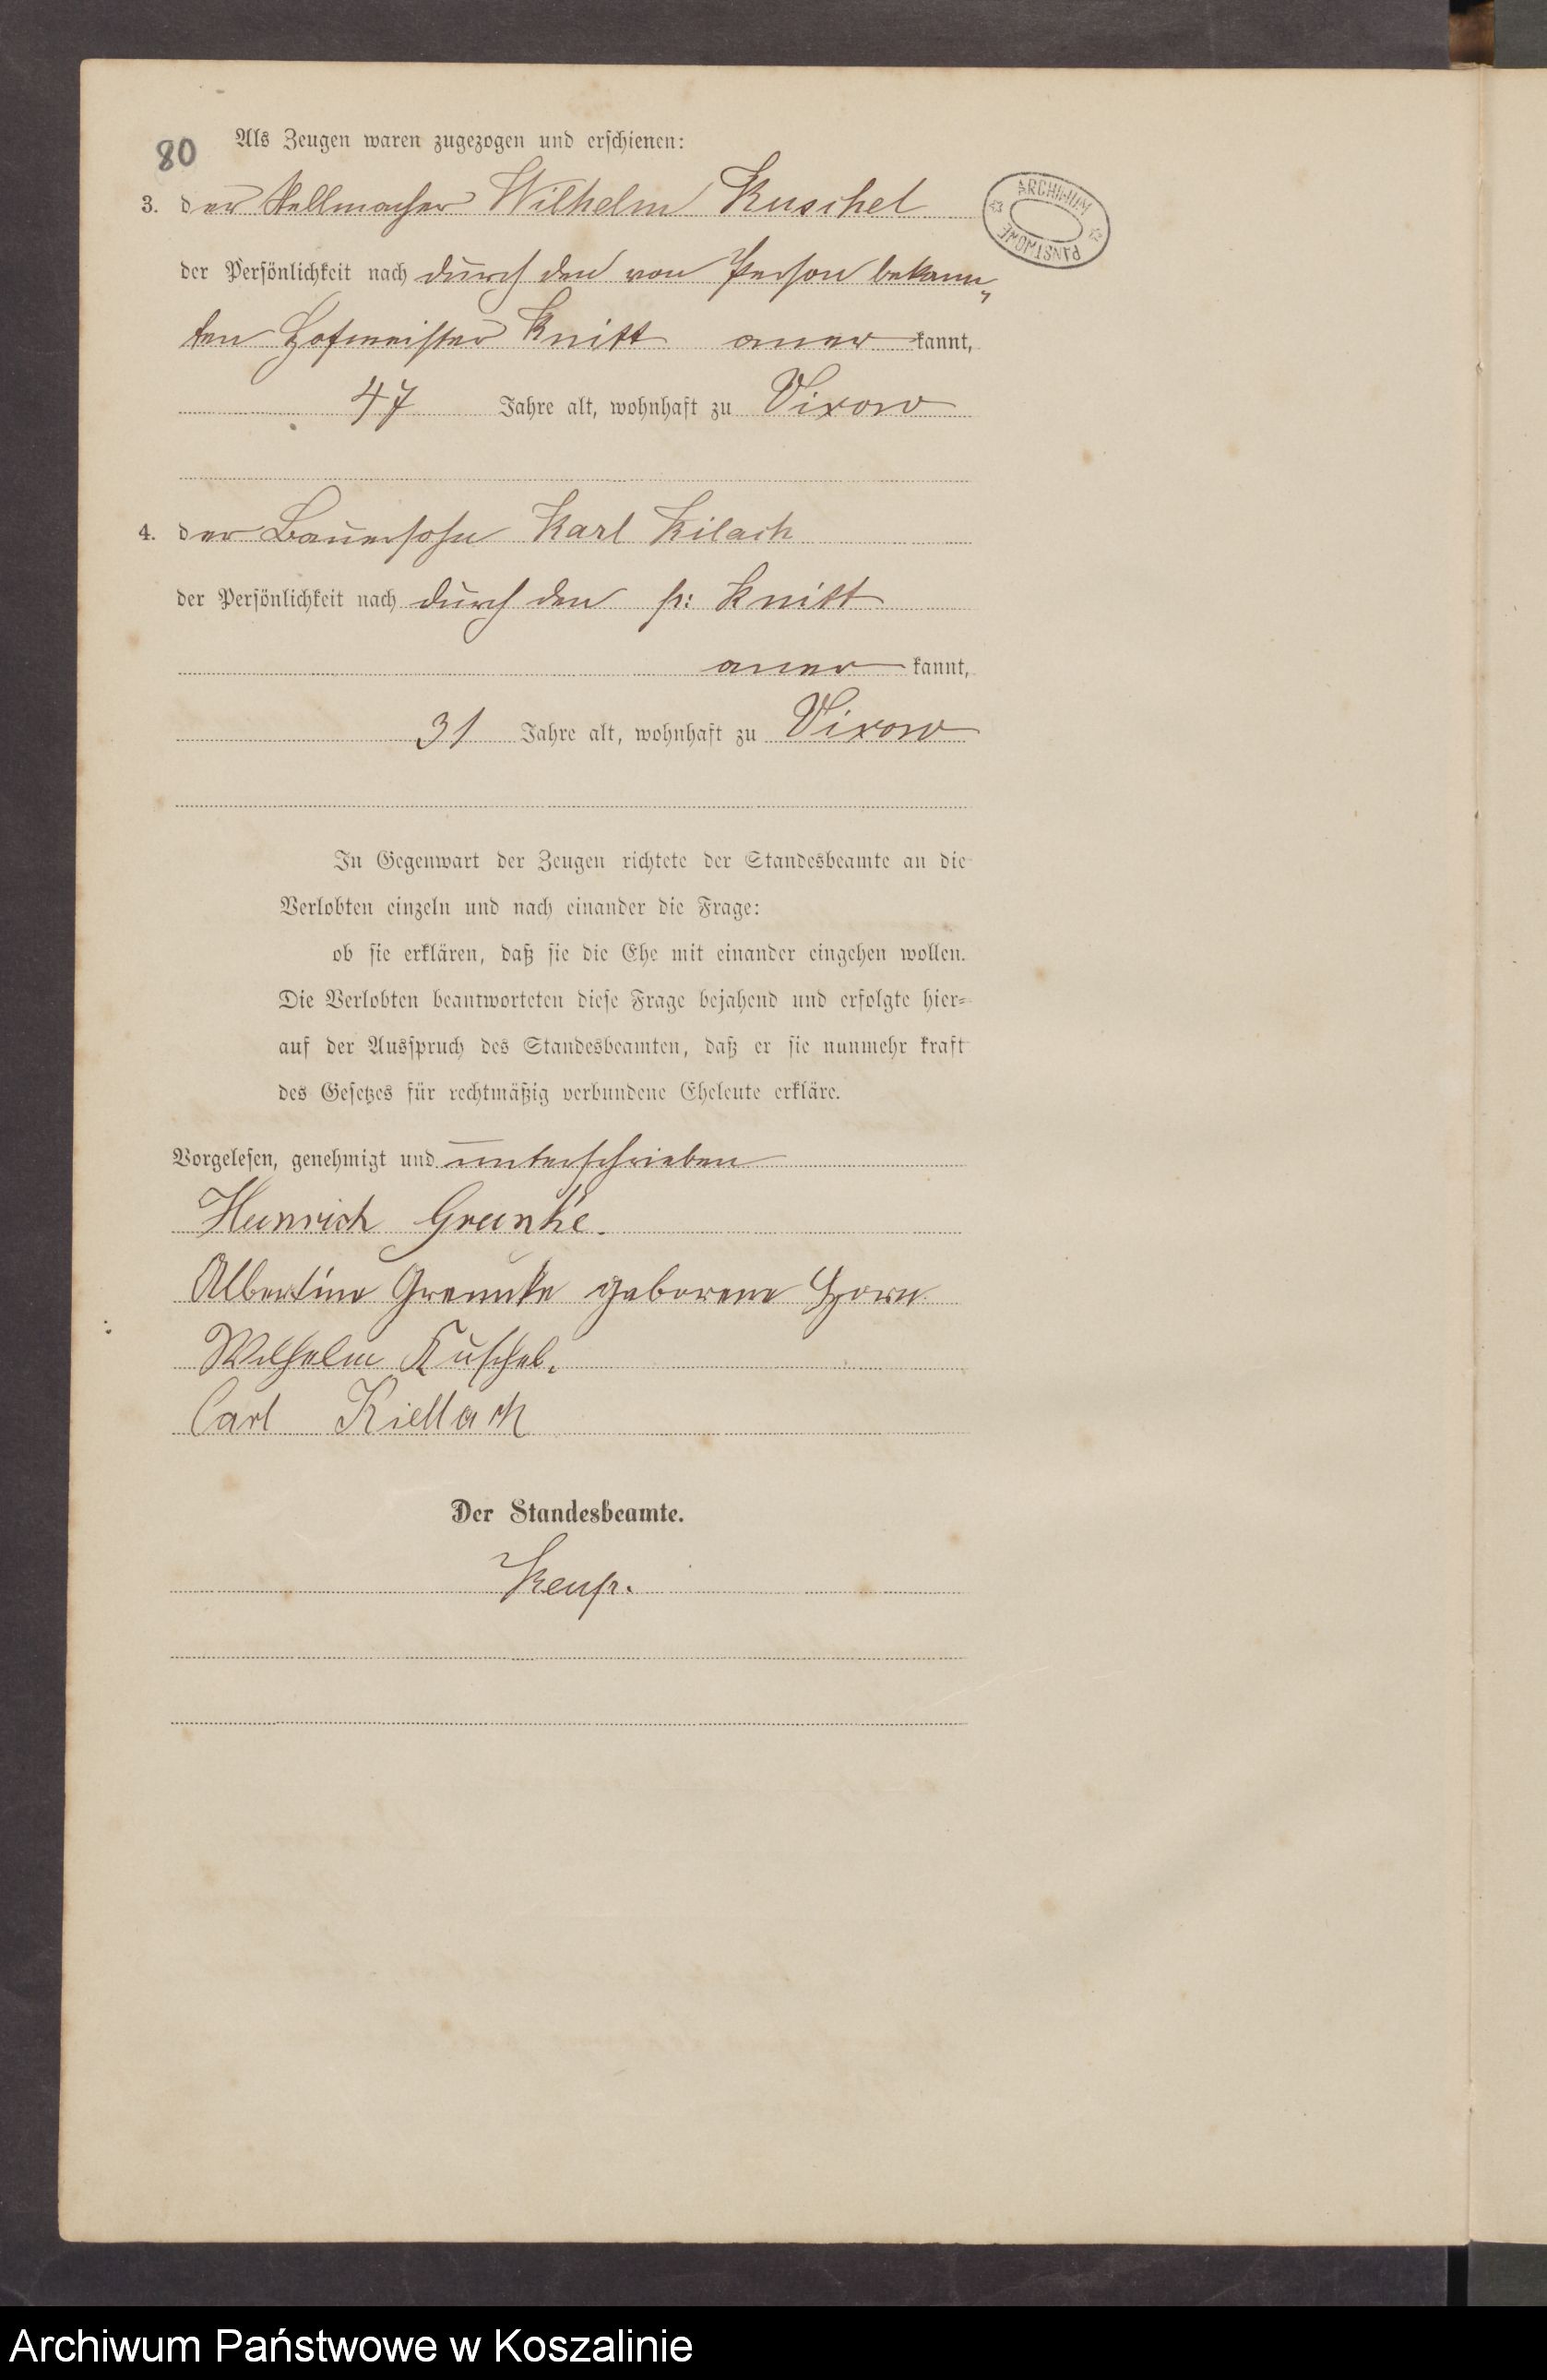 80
Als Zeugen waren zugezogen und erschienen:
3. der Stellmacher Wilhelm Kuschel
der Persönlichkeit nach durch den von Person bekann„
ten Hofmeister Knitt aner kannt,
47 Jahre alt, wohnhaft zu Vixow
4. der Bauersohn Karl Kilach
der Persönlichkeit nach durch den p: Knitt
aner kannt,
31 Jahre alt, wohnhaft zu Vixow
In Gegenwart der Zeugen richtete der Standesbeamte an die
Verlobten einzeln und nach einander die Frage:
ob sie erklären, daß sie die Ehe mit einander eingehen wollen.
Die Verlobten beantworteten diese Frage bejahend und erfolgte hier=
auf der Ausspruch des Standesbeamten, daß er sie nunmehr kraft
des Gesetzes für rechtmäßig verbundene Eheleute erkläre.
Vorgelesen, genehmigt und unterschrieben
Heinrich
Albertine geborene Horn
Wilhelm Kuschel.
Carl Kiellach
Der Standesbeamte.
ARCHIWUM PAŃSTWOWE
Archiwum Państwowe w Koszalinie